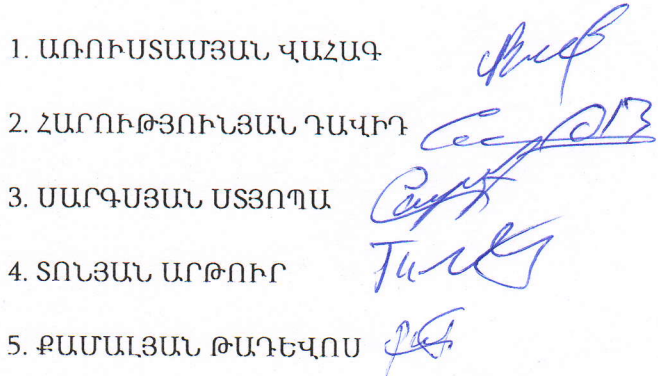 1. ԱՌՈՒՍՏԱՄՅԱՆ ՎԱՀԱԳ
2. ՀԱՐՈՒԹՅՈՒՆՅԱՆ ԴԱՎԻԴ
3. ՍԱՐԳՍՅԱՆ ՍՏՅՈՊԱ
4. ՏՈՆՅԱՆ ԱՐԹՈՒՐ
5. ՔԱՄԱԼՅԱՆ ԹԱԴԵՎՈՍ